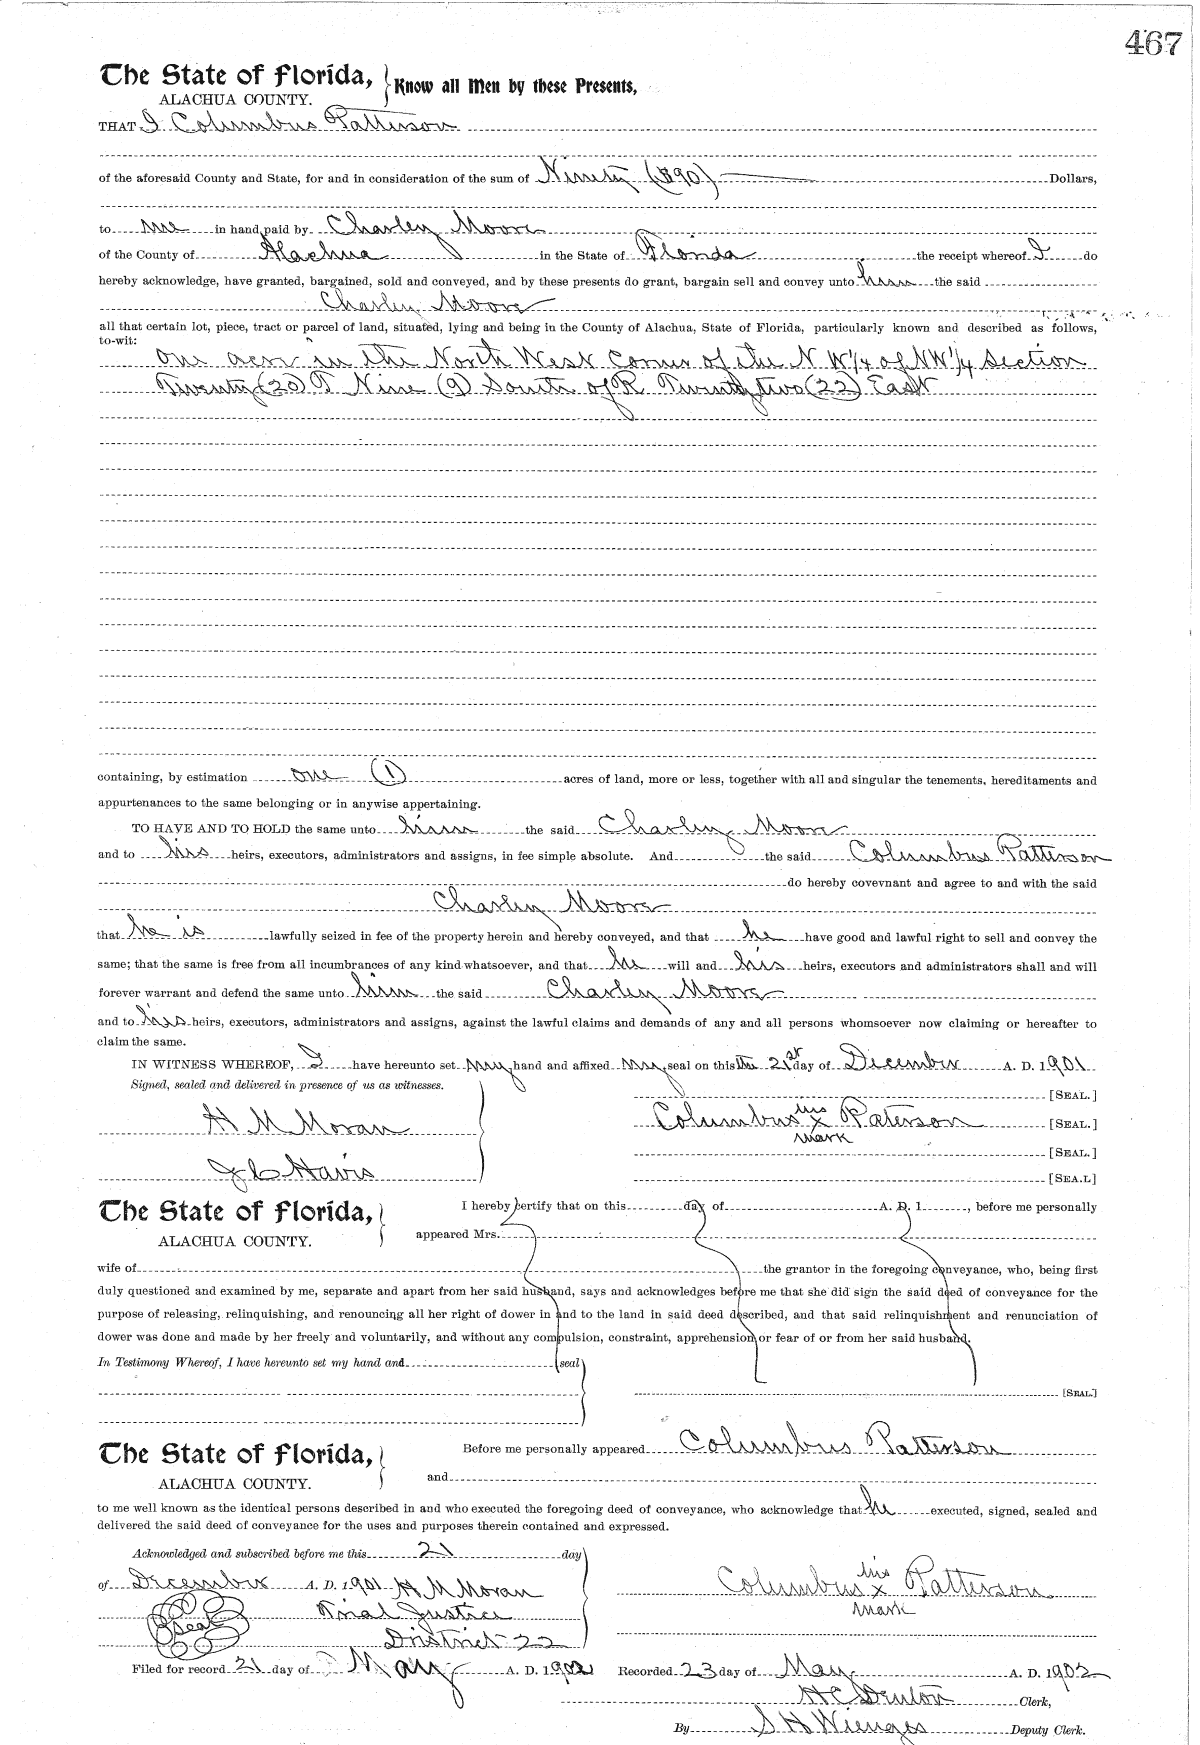 467
The State of Florida, } Know all Men by these Presents,
ALACHUA COUNTY.
THAT I Columbus Patterson
of the aforesaid County and State, for and in consideration of the sum of Ninety ($90) Dollars,
to me in hand paid by Charley Moore
of the County of Alachua in the State of Florida the receipt whereof I do
hereby acknowledge, have granted, bargained, sold and conveyed, and by these presents do grant, bargain sell and convey unto him the said
Charley Moore
all that certain lot, piece, tract or parcel of land, situated, lying and being in the County of Alachua, State of Florida, particularly known and described as follows,
to-wit:
One acre in the North West Corner of the N W 1/4 of NW 1/4 Section
Twenty (20) T Nine (9) South of R Twenty two (22) East
containing, by estimation one (1) acres of land, more or less, together with all and singular the tenements, hereditaments and
appurtenances to the same belonging or in anywise appertaining.
TO HAVE AND TO HOLD the same unto him the said Charley Moore
and to his heirs, executors, administrators and assigns, in fee simple absolute. And the said Columbus Patterson
do hereby covevnant and agree to and with the said
Charley Moore
that he is lawfully seized in fee of the property herein and hereby conveyed, and that he have good and lawful right to sell and convey the
same; that the same is free from all incumbrances of any kind whatsoever, and that he will and his heirs, executors and administrators shall and will
forever warrant and defend the same unto him the said Charley Moore
and to his heirs, executors, administrators and assigns, against the lawful claims and demands of any and all persons whomsoever now claiming or hereafter to
claim the same.
IN WITNESS WHEREOF, I have hereunto set my hand and affixed my seal on this the 21st day of December A. D. 1901
Signed, sealed and delivered in presence of us as witnesses.
[SEAL.]
H M Moran
Columbus his x mark Paterson [SEAL.]
[SEAL.]
J C Havis
[SEA.L]
The State of Florida, } I hereby certify that on this day of A. D. 1 , before me personally
ALACHUA COUNTY.
appeared Mrs.
wife of the grantor in the foregoing conveyance, who, being first
duly questioned and examined by me, separate and apart from her said husband, says and acknowledges before me that she did sign the said deed of conveyance for the
purpose of releasing, relinquishing, and renouncing all her right of dower in and to the land in said deed described, and that said relinquishment and renunciation of
dower was done and made by her freely and voluntarily, and without any compulsion, constraint, apprehension or fear of or from her said husband.
In Testimony Whereof, I have hereunto set my hand and seal
[SEAL.]
The State of Florida, } Before me personally appeared Columbus Patterson
ALACHUA COUNTY.
and
to me well known as the identical persons described in and who executed the foregoing deed of conveyance, who acknowledge that he executed, signed, sealed and
delivered the said deed of conveyance for the uses and purposes therein contained and expressed.
Acknowledged and subscribed before me this 21 day
of December A. D. 1901 H M Moran
Columbus his x mark Patterson
Seal
Trial Justice
District 22
Filed for record 21 day of May A. D. 1902 Recorded 23 day of May A. D. 1902
H C Denton Clerk,
By S H Wienges Deputy Clerk.